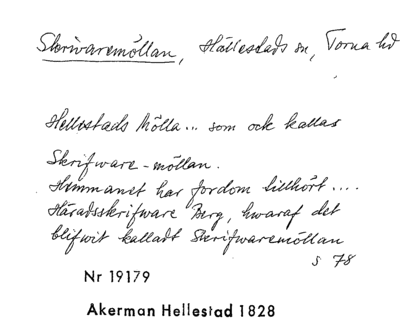 Skrivaremöllan, Hällestads sn, Torna hd
Hellestads Mölla... som ock kallas
Skrifware-möllan.
Hemmanet har fordom tillhört....
Häradsskrifware Berg, hwaraf det
blifwit kalladt Skrifwaremöllan
s 78
Nr 19179
Akerman Hellestad 1828